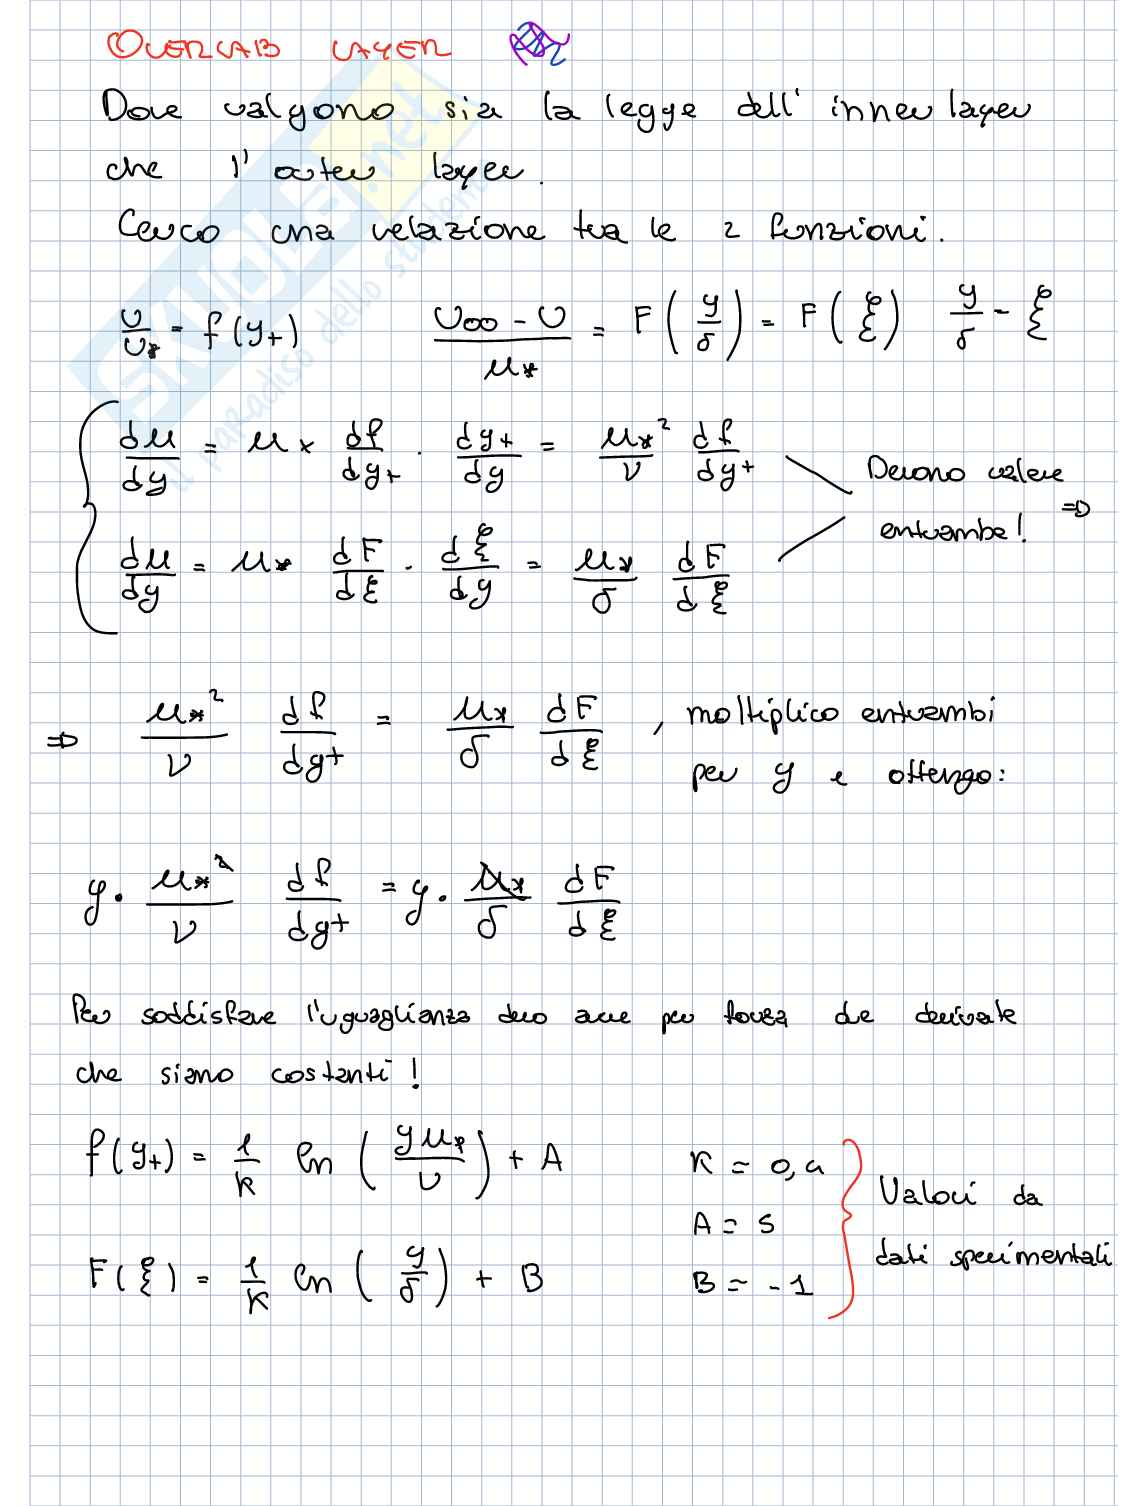 OVERLAB LAYER
Dove valgono sia la legge dell' inner layer
che l' outer layer.
Cerco una relazione tra le 2 funzioni.
u/u* = f(y+)    (U∞ - U)/u* = F(y/δ) = F(ξ)    y/δ = ξ
du/dy = u* df/dy+ · dy+/dy = u*²/ν df/dy+    Devono valere
du/dy = u* dF/dξ · dξ/dy = u*/δ dF/dξ    entrambe! =>
=> u*²/ν df/dy+ = u*/δ dF/dξ , moltiplico entrambi
per y e ottengo:
y · u*²/ν df/dy+ = y · u*/δ dF/dξ
Per soddisfare l'uguaglianza devo avere per forza due derivate
che siano costanti!
f(y+) = 1/k ln (y u*/ν) + A    K = 0,4
A = 5
F(ξ) = 1/K ln (y/δ) + B    B = -1
Valori da
dati sperimentali
SKUOLA.net
il paradiso dello studente